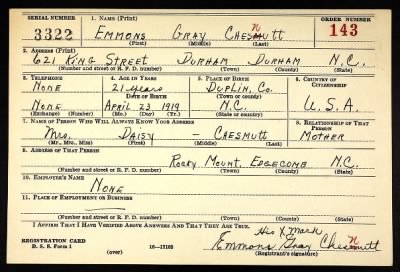 SERIAL NUMBER 1. NAME (Print) ORDER NUMBER
3322 EMMONS GRAY CHESNUTT 143
(First) (Middle) (Last)
2. ADDRESS (Print)
621 KING STREET DURHAM DURHAM N.C.
(Number and street or R. F. D. number) (Town) (County) (State)
3. TELEPHONE 4. AGE IN YEARS 5. PLACE OF BIRTH 6. COUNTRY OF CITIZENSHIP
NONE 21 years DUPLIN, CO.
DATE OF BIRTH (Town or county)
NONE APRIL 23 1919 N.C. U.S.A.
(Exchange) (Number) (Mo.) (Day) (Yr.) (State or country)
7. NAME OF PERSON WHO WILL ALWAYS KNOW YOUR ADDRESS 8. RELATIONSHIP OF THAT PERSON
MRS. DAISY - CHESNUTT MOTHER
(Mr., Mrs., Miss) (First) (Middle) (Last)
9. ADDRESS OF THAT PERSON
ROCKY MOUNT, EDGECOMB N.C.
(Number and street or R. F. D. number) (Town) (County) (State)
10. EMPLOYER'S NAME
NONE
11. PLACE OF EMPLOYMENT OR BUSINESS
(Number and street or R. F. D. number) (Town) (County) (State)
I AFFIRM THAT I HAVE VERIFIED ABOVE ANSWERS AND THAT THEY ARE TRUE.
His X Mark
REGISTRATION CARD
D. S. S. Form 1 16-17105 Emmons Gray Chesnutt
(over) (Registrant's signature)